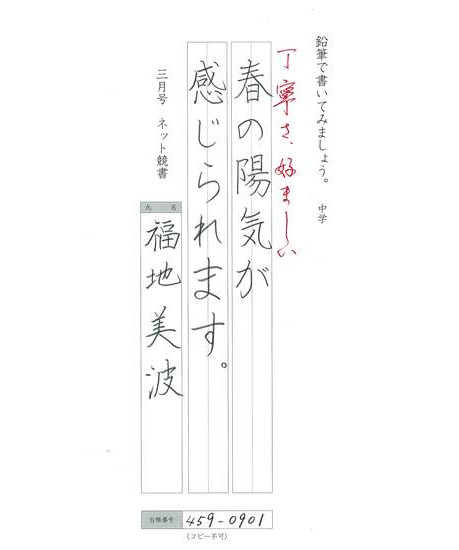 鉛筆で書いてみましょう。 中学
丁寧さ、好ましい
春の陽気が
感じられます。
三月号 ネット競書
氏 名
福地美波
台帳番号 459-0901
(コピー不可)